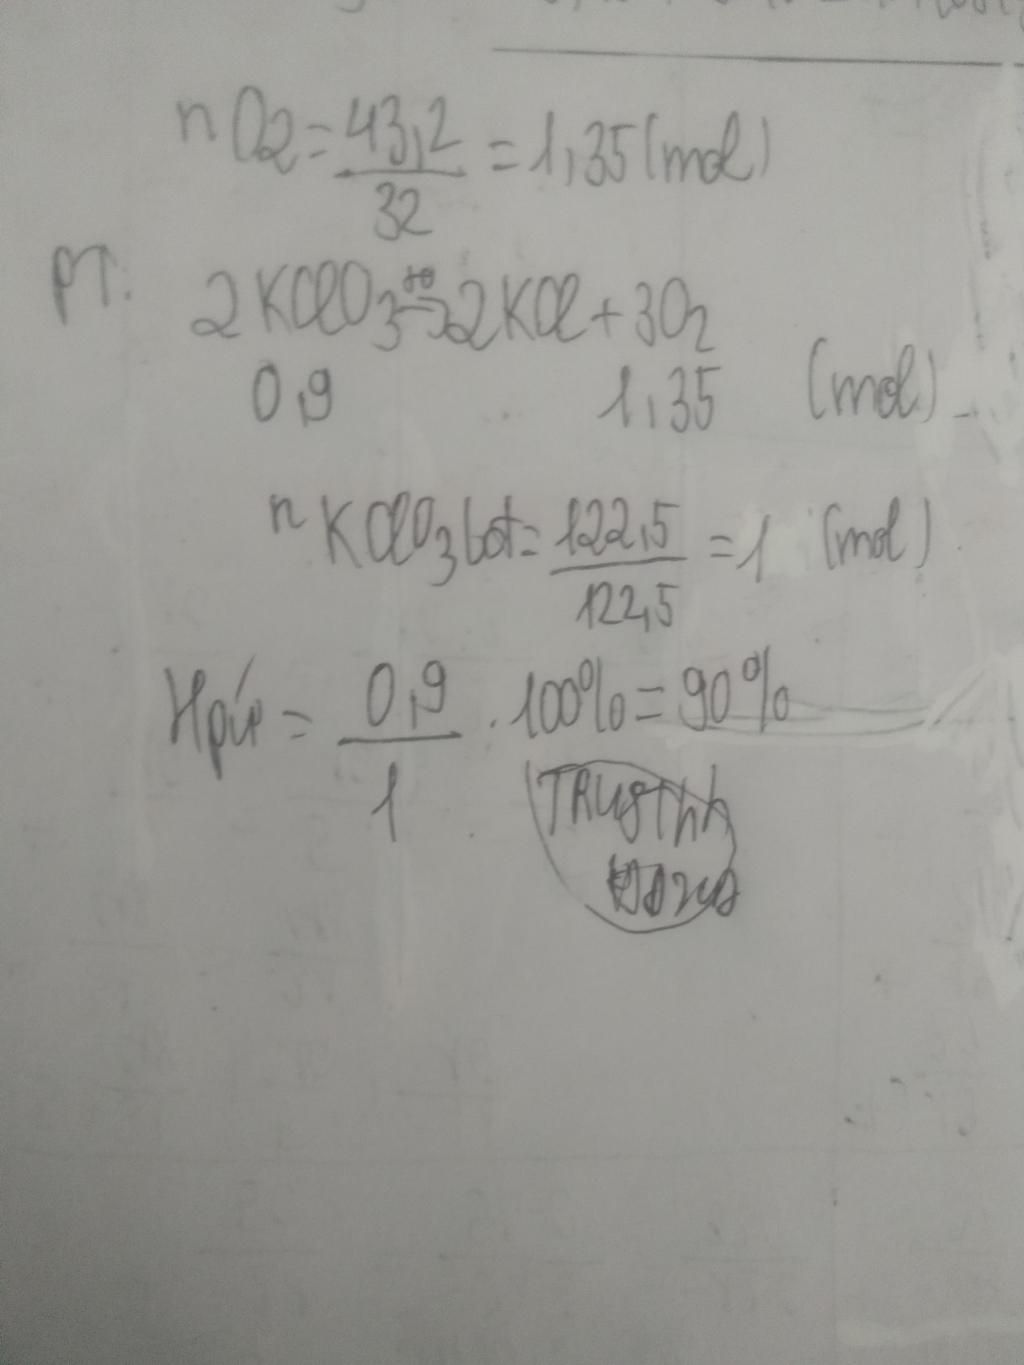 nO2 = 43,2 / 32 = 1,35 (mol)
PT: 2KClO3 t° → 2KCl + 3O2
0,9 1,35 (mol)
nKClO3 bđ = 122,5 / 122,5 = 1 (mol)
Hpứ = 0,9 / 1 . 100% = 90%